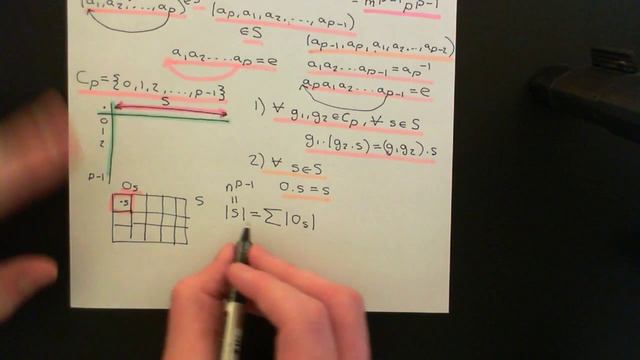 (a₁,a₂,...,aₚ)
(aₚ,a₁,a₂,...,aₚ₋₁)
∈ S
= mᵖ⁻¹pᵖ⁻¹
a₁a₂...aₚ=e
(aₚ₋₁,aₚ,a₁,a₂,..,aₚ₋₂)
a₁a₂...aₚ₋₁=aₚ⁻¹
aₚa₁a₂...aₚ₋₁=e
Cₚ={0,1,2,...,p-1}
S
.
0
1
2
p-1
1) ∀ g₁,g₂∈Cₚ, ∀ s∈S
g₁.(g₂.s)=(g₁g₂).s
2) ∀ s∈S
0.s=s
Oₛ
.s
S
nᵖ⁻¹
=
|S|=∑|Oₛ|